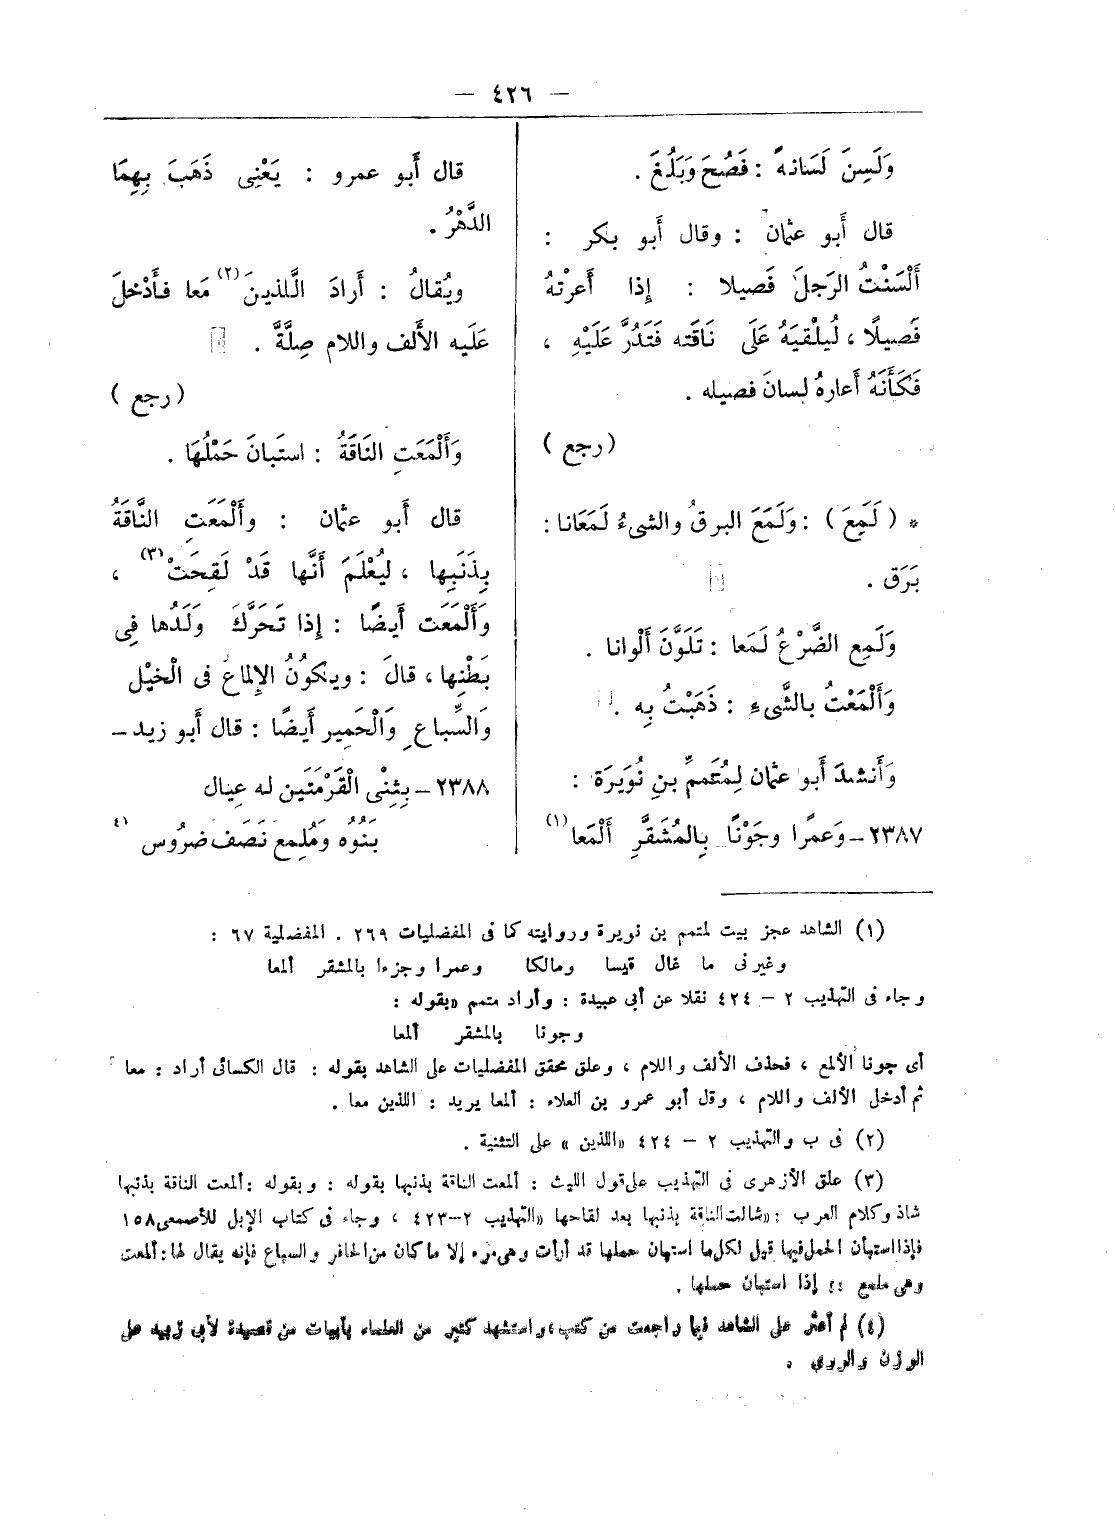 — ٤٢٦ —
وَلَسِنَ لَسَانةً : فَصُحَ وَبَلُغَ .
قال أَبو عثمان : وقال أَبو بكر :
أَلْسَنْتُ الرَجلَ فَصيلا : إِذا أَعرتْهُ
فَصيلًا ، لَيُلْقيَهُ عَلَى نَاقَته فَتَدُرَّ عَلَيْهِ ،
فَكَأَنَّهُ أَعارهُ لسانَ فصيله .
( رجع )
* ( لَمِعَ ) : وَلَمَعَ البرقُ والشىءُ لَمَعَانا :
بَرَق .
وَلَمِع الضَّرْعُ لَمَعا : تَلَوَّنَ أَلْوانا .
وَأَلْمَعْتُ بالشَّىءِ : ذَهَبْتُ بِه .
وَأَنشدَ أَبو عثمان لِمُتَممِّ بنِ نُوَيرَةَ :
٢٣٨٧ – وَعَمرًا وجَوْنًا بِالمُشَقَّرِ أَلْمَعا (١)
قال أَبو عمرو : يَعْنِى ذَهَبَ بِهِمَا
الدَّهْرُ .
ويُقالُ : أَرادَ الَّلذينَ (٢) مَعا فأَدْخلَ
عَلَيه الأَلف واللام صِلَّةً .
( رجع )
وَأَلْمَعَتِ النَاقَةُ : استَبانَ حَمْلُهَا .
قال أَبو عثمان : وأَلْمَعَتِ النَّاقَةُ
بِذَنَبِها ، لَيُعْلَمَ أَنَّها قَدْ لَقِحَتْ (٣) ،
وَأَلْمَعَت أَيضًا : إِذا تَحَرَّكَ وَلَدُها فِى
بَطْنِها ، قالَ : ويكونُ الإِلماعُ فى الْخيْل
وَالسِّباعِ وَالْحَمِير أَيضًا : قال أَبو زيد –
٢٣٨٨ – بِثِنْى الْقَرْمَتَين له عِيال
بَنُوه وَمُلمِع نَصَف ضرُوس ٤)
(١) الشاهد عجز بيت لمتمم بن نويرة وروايته كما فى المفضليات ٢٦٩ . المفضلية ٦٧ :
وغيرنى ما غال قيسا ومالكا وعمرا وجزءا بالمشقر ألمعا
وجاء فى التهذيب ٢ – ٤٢٤ نقلا عن أبى عبيدة : وأراد متمم «بقوله :
وجونا بالمشقر ألمعا
أى جونا الألمع ، فحذف الألف واللام ، وعلق محقق المفضليات على الشاهد بقوله : قال الكسائى أراد : معا
ثم أدخل الألف واللام ، وقل أبو عمرو بن العلاء : ألمعا يريد : اللذين معا .
(٢) فى ب والتهذيب ٢ – ٤٢٤ «اللذين » على التثنية .
(٣) علق الأزهرى فى التهذيب على قول الليث : ألمعت الناقة بذنبها بقوله : وبقوله : ألمعت الناقة بذنبها
شاذ وكلام العرب : «شالت الناقة بذنبها بعد لقاحها «التهذيب ٢–٤٢٣ ، وجاء فى كتاب الإبل للأصمعى ١٥٨
فإذا استبأن الحمل فيها قيل لكل ما استبان حملها قد أرأت وهى مرء إلا ما كان من الحافر والسباع فإنه يقال لها : ألمعت
وهى ملمع :: إذا استبان حملها .
(٤) لم أعثر على الشاهد فيما راجعت من كتب ، واستشهد كثير من العلماء بأبيات من قصيدة لأبى زبيد على
الوزن والروى .